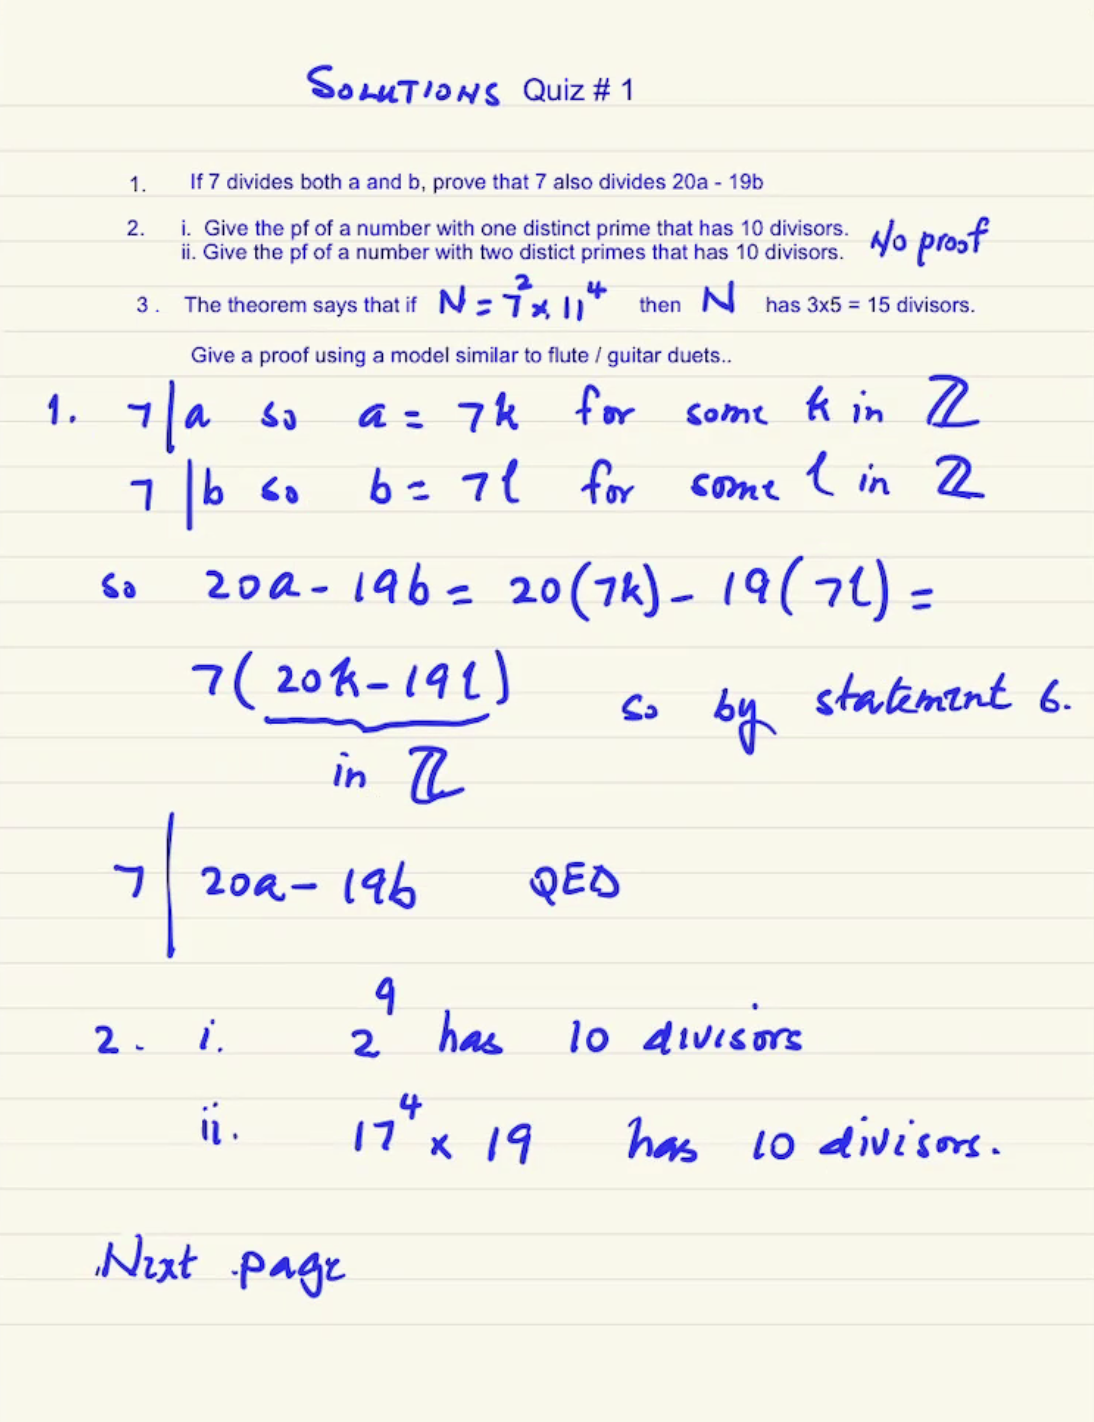 SOLUTIONS Quiz # 1
1. If 7 divides both a and b, prove that 7 also divides 20a - 19b
2. i. Give the pf of a number with one distinct prime that has 10 divisors. No proof
ii. Give the pf of a number with two distict primes that has 10 divisors.
3. The theorem says that if N = 7² x 11⁴ then N has 3x5 = 15 divisors.
Give a proof using a model similar to flute / guitar duets..
1. 7|a so a = 7k for some k in ℤ
7|b so b = 7l for some l in ℤ
so 20a - 19b = 20(7k) - 19(7l) =
7(20k - 19l) so by statement 6.
in ℤ
7|20a - 19b QED
2. i. 2⁹ has 10 divisors
ii. 17⁴ x 19 has 10 divisors.
Next page